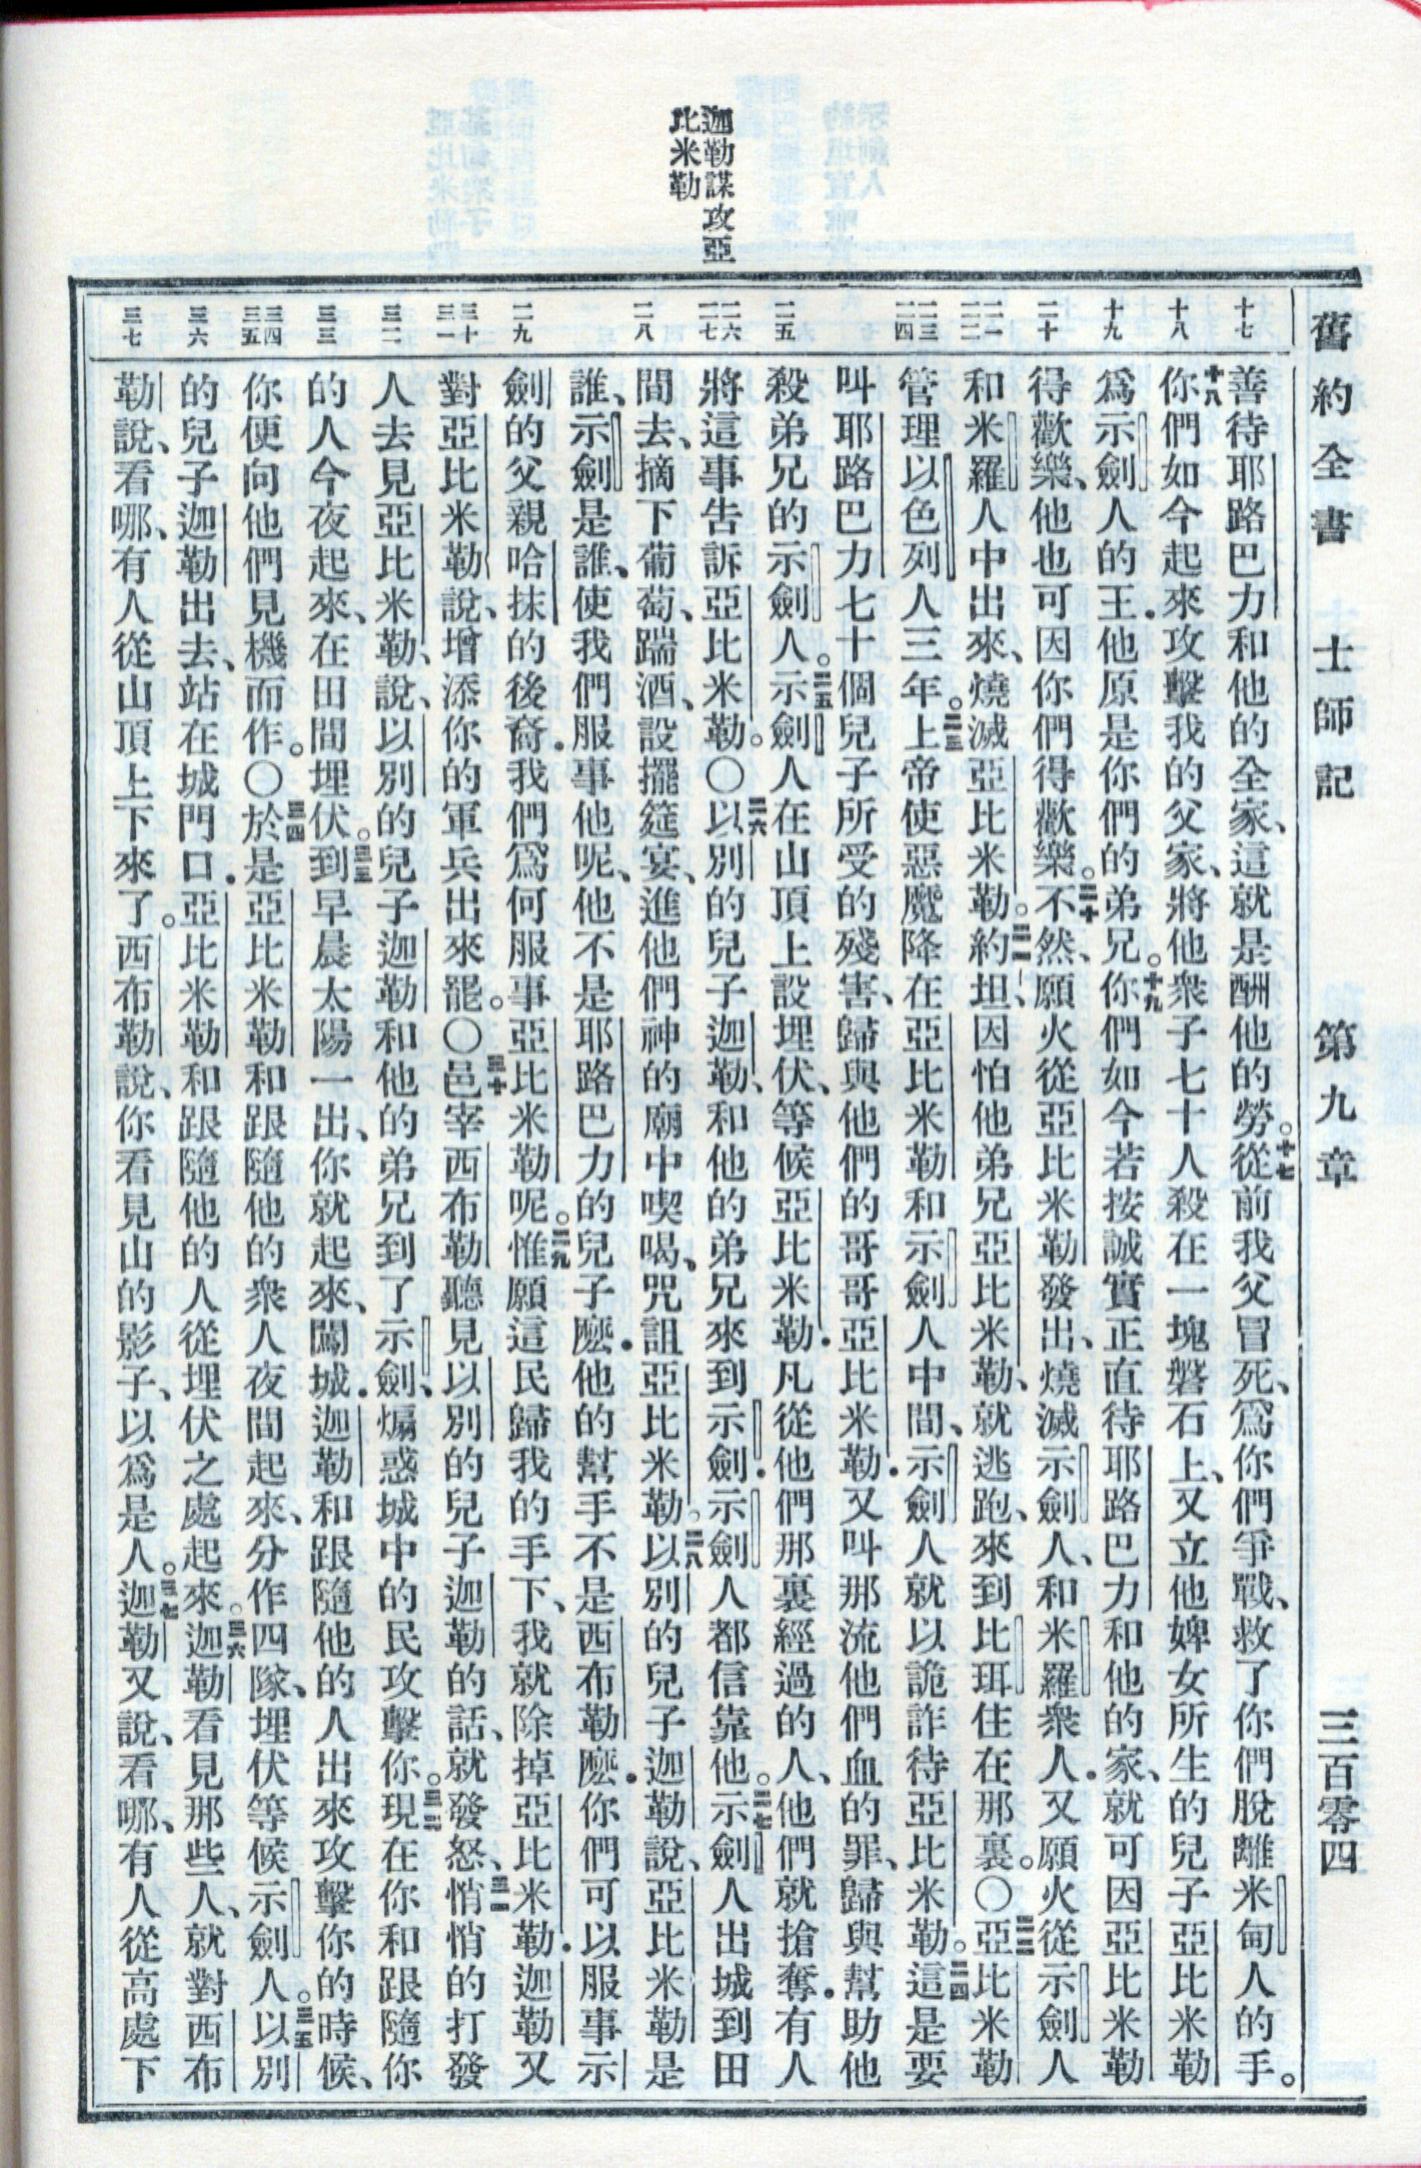 舊約全書　士師記　第九章　三百零四
迦勒謀攻亞
比米勒
十七
十八
十九
二十
二一
二二
二三
二四
二五
二六
二七
二八
二九
三十
三一
三二
三三
三四
三五
三六
三七
善待耶路巴力和他的全家、這就是酬他的勞。十七從前我父冒死、爲你們爭戰、救了你們脫離米甸人的手。
十八你們如今起來攻擊我的父家、將他衆子七十人殺在一塊磐石上、又立他婢女所生的兒子亞比米勒
爲示劍人的王．他原是你們的弟兄。十九你們如今若按誠實正直待耶路巴力和他的家、就可因亞比米勒
得歡樂、他也可因你們得歡樂。二十不然、願火從亞比米勒發出、燒滅示劍人、和米羅衆人．又願火從示劍人
和米羅人中出來、燒滅亞比米勒。二一約坦、因怕他弟兄亞比米勒、就逃跑、來到比珥住在那裏。〇二二亞比米勒
管理以色列人三年。二三上帝使惡魔降在亞比米勒和示劍人中間、示劍人就以詭詐待亞比米勒。二四這是要
叫耶路巴力七十個兒子所受的殘害、歸與他們的哥哥亞比米勒．又叫那流他們血的罪、歸與幫助他
殺弟兄的示劍人。二五示劍人在山頂上設埋伏、等候亞比米勒．凡從他們那裏經過的人、他們就搶奪．有人
將這事告訴亞比米勒。〇二六以別的兒子迦勒、和他的弟兄來到示劍．示劍人都信靠他。二七示劍人出城到田
間去、摘下葡萄、踹酒、設擺筵宴、進他們神的廟中喫喝、咒詛亞比米勒。二八以別的兒子迦勒說、亞比米勒是
誰、示劍是誰、使我們服事他呢、他不是耶路巴力的兒子麽．他的幫手不是西布勒麽．你們可以服事示
劍的父親哈抹的後裔．我們爲何服事亞比米勒呢。二九惟願這民歸我的手下、我就除掉亞比米勒．迦勒又
對亞比米勒說、增添你的軍兵出來罷。〇三十邑宰西布勒聽見以別的兒子迦勒的話、就發怒、三一悄悄的打發
人去見亞比米勒、說、以別的兒子迦勒和他的弟兄到了示劍、煽惑城中的民攻擊你。三二現在你和跟隨你
的人今夜起來、在田間埋伏。三三到早晨太陽一出、你就起來、闖城．迦勒和跟隨他的人出來攻擊你的時候、
你便向他們見機而作。〇三四於是亞比米勒和跟隨他的衆人夜間起來、分作四隊、埋伏等候示劍人。三五以別
的兒子迦勒出去、站在城門口．亞比米勒和跟隨他的人從埋伏之處起來。三六迦勒看見那些人、就對西布
勒說、看哪、有人從山頂上下來了。西布勒說、你看見山的影子、以爲是人。三七迦勒又說、看哪、有人從高處下